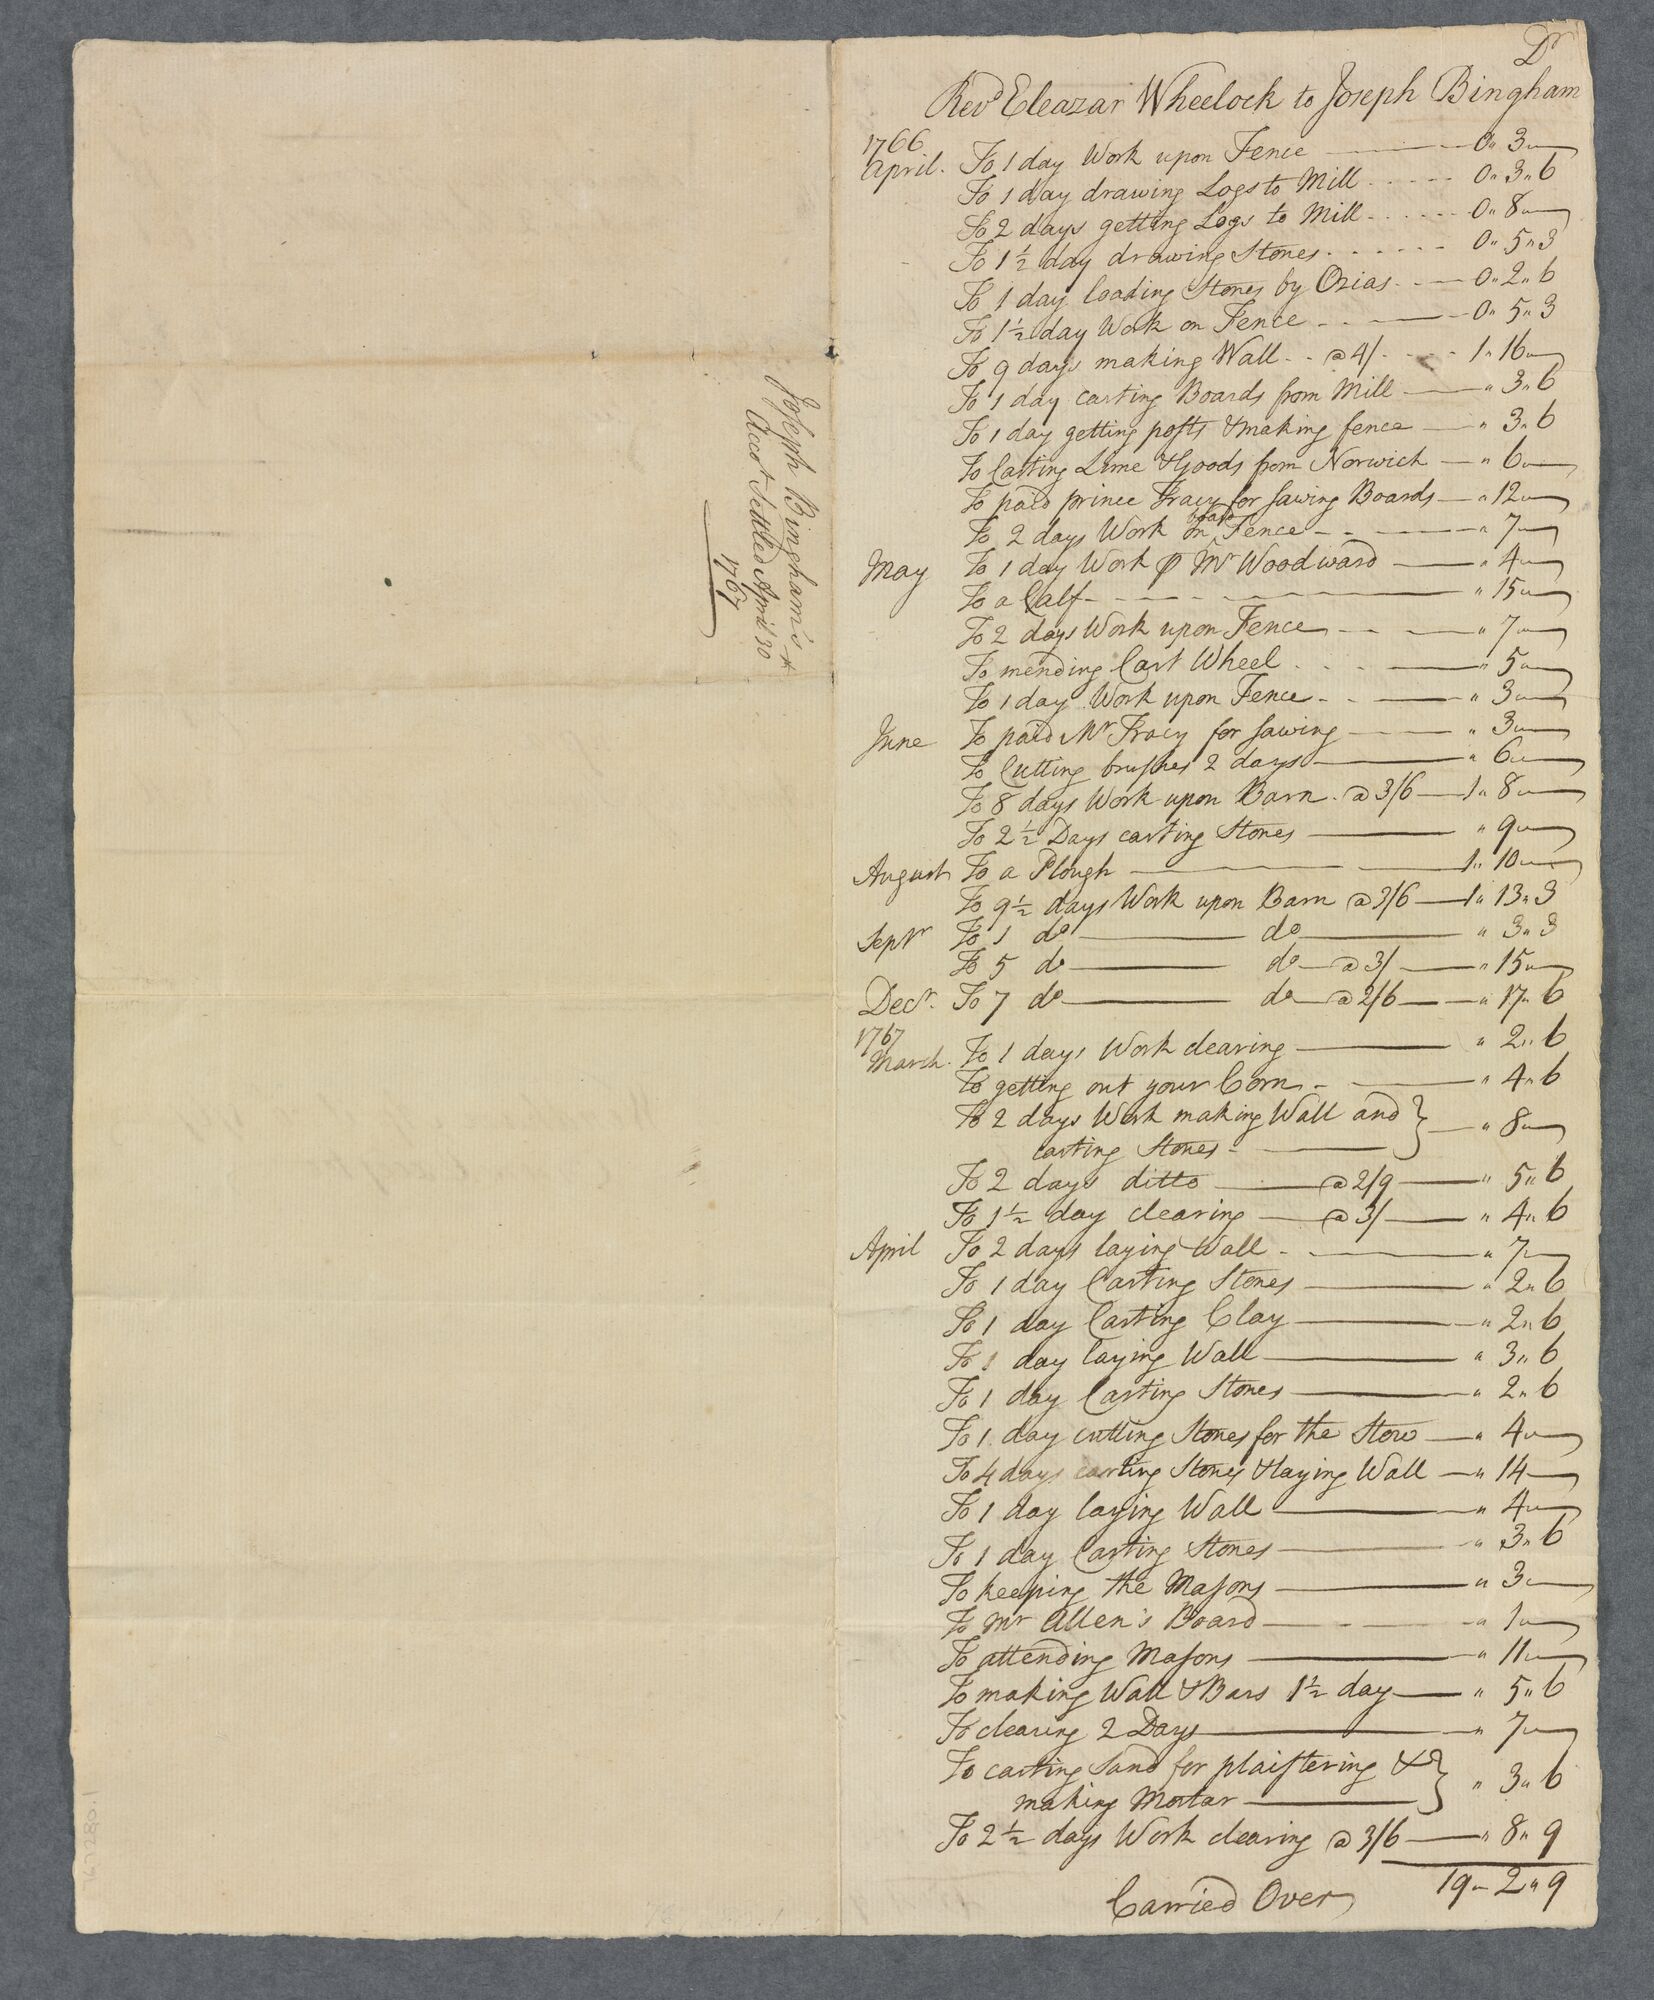 Joseph Bingham's
Acco.t Settled April 30
1767
Dr
Revd Eleazar Wheelock to Joseph Bingham
1766
April. To 1 day Work upon Fence 0" 3"
To 1 day drawing Logs to Mill 0" 3" 6
To 2 days getting Logs to Mill 0" 8"
To 1 1/2 day drawing Stones 0" 5" 3
To 1 day loading Stones by Ozias 0" 2" 6
To 1 1/2 day Work on Fence 0" 5" 3
To 9 days making Wall @ 4/ 1" 16"
To 1 day carting Boards from Mill " 3" 6
To 1 day getting posts & making fence " 3" 6
To Carting Lime & Goods from Norwich " 6"
To paid prince Tracy for sawing Boards " 12"
To 2 days Work on board Fence " 7"
May To 1 day Work p Mr Woodward " 4"
To a Calf " 15"
To 2 days Work upon Fence " 7"
To mending Cart Wheel " 5"
To 1 day Work upon Fence " 3"
June To paid Mr Tracy for sawing " 3"
To Cutting brushes 2 days " 6"
To 8 days Work upon Barn @ 3/6 1" 8"
To 2 1/2 Days carting Stones " 9"
August To a Plough 1" 10"
To 9 1/2 days Work upon Barn @ 3/6 1" 13" 3
Septr To 1 do do " 3" 3
To 5 do do @ 3/ " 15"
Decr. To 7 do do @ 2/6 " 17" 6
1767
March. To 1 days Work clearing " 2" 6
To getting out your Corn " 4" 6
To 2 days Work making Wall and
carting Stones " 8"
To 2 days ditto @ 2/9 " 5" 6
To 1 1/2 day clearing @ 3/ " 4" 6
April To 2 days laying Wall " 7"
To 1 day Carting Stones " 2" 6
To 1 day Carting Clay " 2" 6
To 1 day laying Wall " 3" 6
To 1 day Carting Stones " 2" 6
To 1 day cutting Stones for the Stow " 4"
To 4 days carting Stones & laying Wall " 14
To 1 day laying Wall " 4"
To 1 day Carting Stones " 3" 6
To keeping the Masons " 3
To Mr Allen's Board " 1"
To attending Masons " 11"
To making Wall & Bars 1 1/2 day " 5" 6
To clearing 2 Days " 7"
To carting Sand for plaistering &
making Mortar " 3" 6
To 2 1/2 days Work clearing @ 3/6 " 8" 9
19" 2" 9
Carried Over